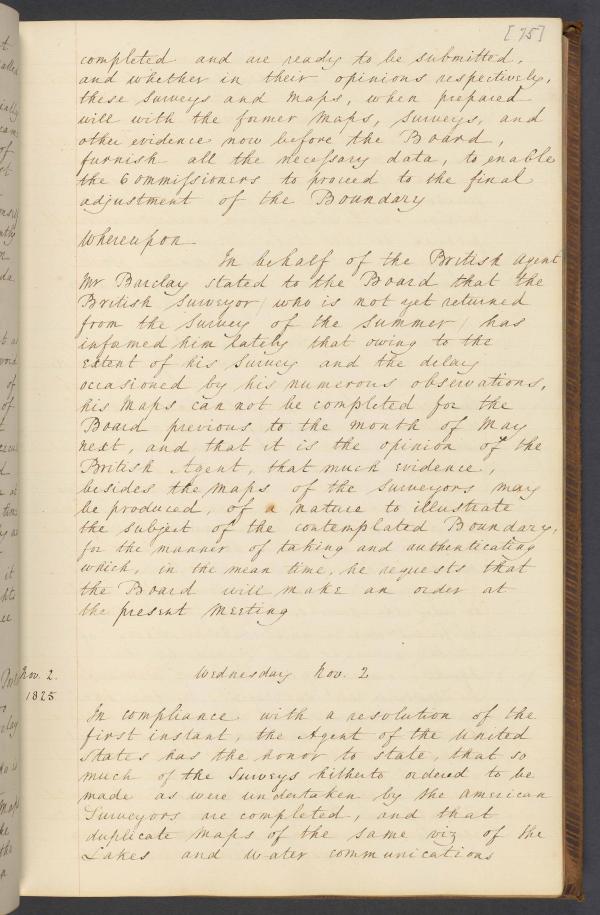 [75]
completed and are ready to be submitted,
and whether in their opinions respectively,
these Surveys and Maps, when prepared
will with the former Maps, Surveys, and
other evidence now before the Board,
furnish all the necessary data, to enable
the Commissioners to proceed to the final
adjustment of the Boundary
Whereupon
In behalf of the British Agent
Mr Barclay stated to the Board that the
British Surveyor (who is not yet returned
from the Survey of the Summer) has
informed him lately that owing to the
Extent of his Survey and the delay
occasioned by his numerous observations,
his Maps can not be completed for the
Board previous to the month of May
next, and that it is the opinion of the
British Agent, that much evidence,
besides the maps of the Surveyors may
be produced, of a nature to illustrate
the subject of the contemplated Boundary,
for the manner of taking and authenticating
which, in the mean time, he requests that
the Board will make an order at
the present Meeting
Nov. 2.
1825
Wednesday Nov. 2
In compliance with a resolution of the
first instant, the Agent of the United
States has the honor to state, that so
much of the Surveys hitherto ordered to be
made as were undertaken by the American
Surveyors are completed, and that
duplicate Maps of the same viz of the
Lakes and water communications